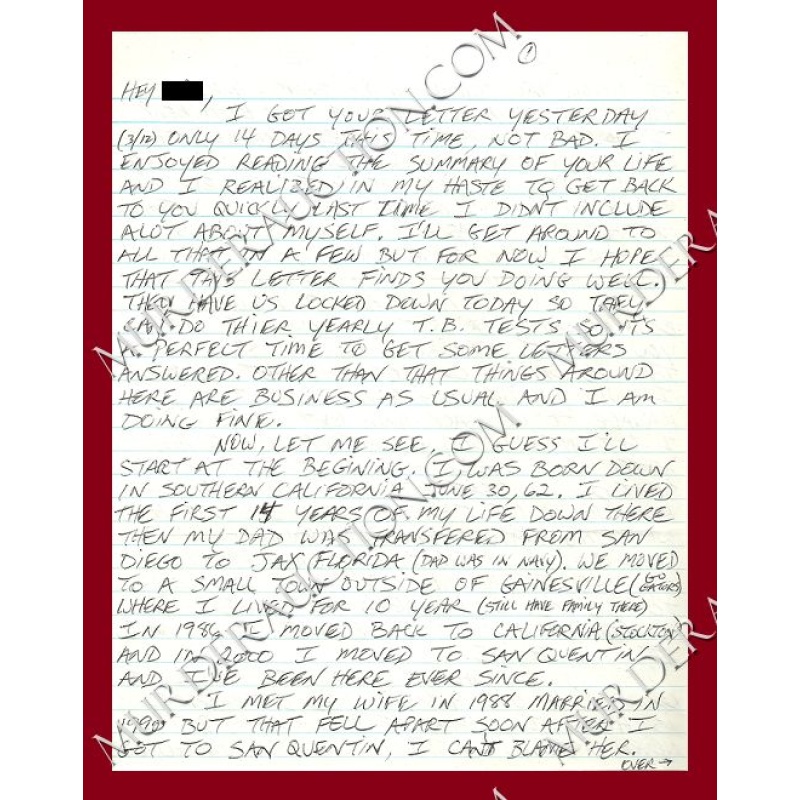 ①
HEY      ,
I GOT YOUR LETTER YESTERDAY
(3/12) ONLY 14 DAYS THIS TIME, NOT BAD. I
ENJOYED READING THE SUMMARY OF YOUR LIFE
AND I REALIZED IN MY HASTE TO GET BACK
TO YOU QUICKLY LAST TIME I DIDNT INCLUDE
ALOT ABOUT MYSELF. I'LL GET AROUND TO
ALL THAT IN A FEW BUT FOR NOW I HOPE
THAT THIS LETTER FINDS YOU DOING WELL.
THEY HAVE US LOCKED DOWN TODAY SO THEY
CAN DO THIER YEARLY T.B. TESTS SO ITS
A PERFECT TIME TO GET SOME LETTERS
ANSWERED. OTHER THAN THAT THINGS AROUND
HERE ARE BUSINESS AS USUAL AND I AM
DOING FINE.
NOW, LET ME SEE, I GUESS I'LL
START AT THE BEGINING. I WAS BORN DOWN
IN SOUTHERN CALIFORNIA JUNE 30, 62. I LIVED
THE FIRST 14 YEARS OF MY LIFE DOWN THERE
THEN MY DAD WAS TRANSFERED FROM SAN
DIEGO TO JAX FLORIDA (DAD WAS IN NAVY). WE MOVED
TO A SMALL TOWN OUTSIDE OF GAINESVILLE (GO GATORS)
WHERE I LIVED FOR 10 YEAR (STILL HAVE FAMILY THERE)
IN 1986 I MOVED BACK TO CALIFORNIA (STOCKTON)
AND IN 2000 I MOVED TO SAN QUENTIN
AND I'VE BEEN HERE EVER SINCE.
I MET MY WIFE IN 1988 MARRIED IN
1990 BUT THAT FELL APART SOON AFTER I
GOT TO SAN QUENTIN, I CANT BLAME HER.
OVER →
MURDERAUCTION.COM